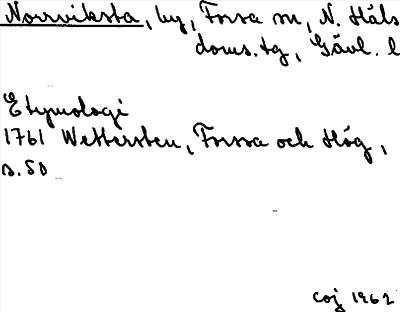 Norrviksta, by, Forsa sn, N. Häls
doms. tg, Gävl. l
Etymologi
1761 Wettersten, Forssa och Hög,
s. 50
coj 1962